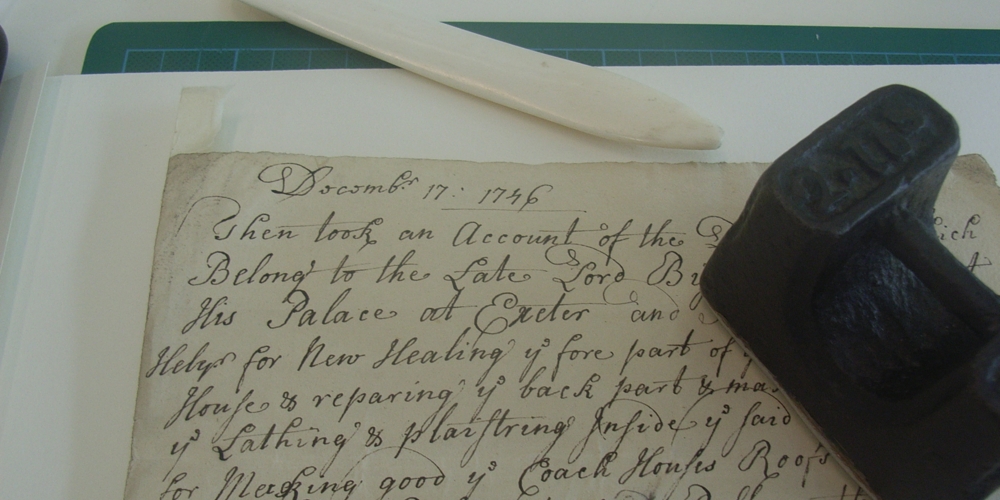 Decemb.r 17: 1746
Then took an Account of the
Belong to the Late Lord
His Palace at Exeter and
Helyr for New Healing ye fore part of
House & reparing ye back part &
ye Lathing & plaistring Inside ye said
for Making good ye Coach Houses Roofs